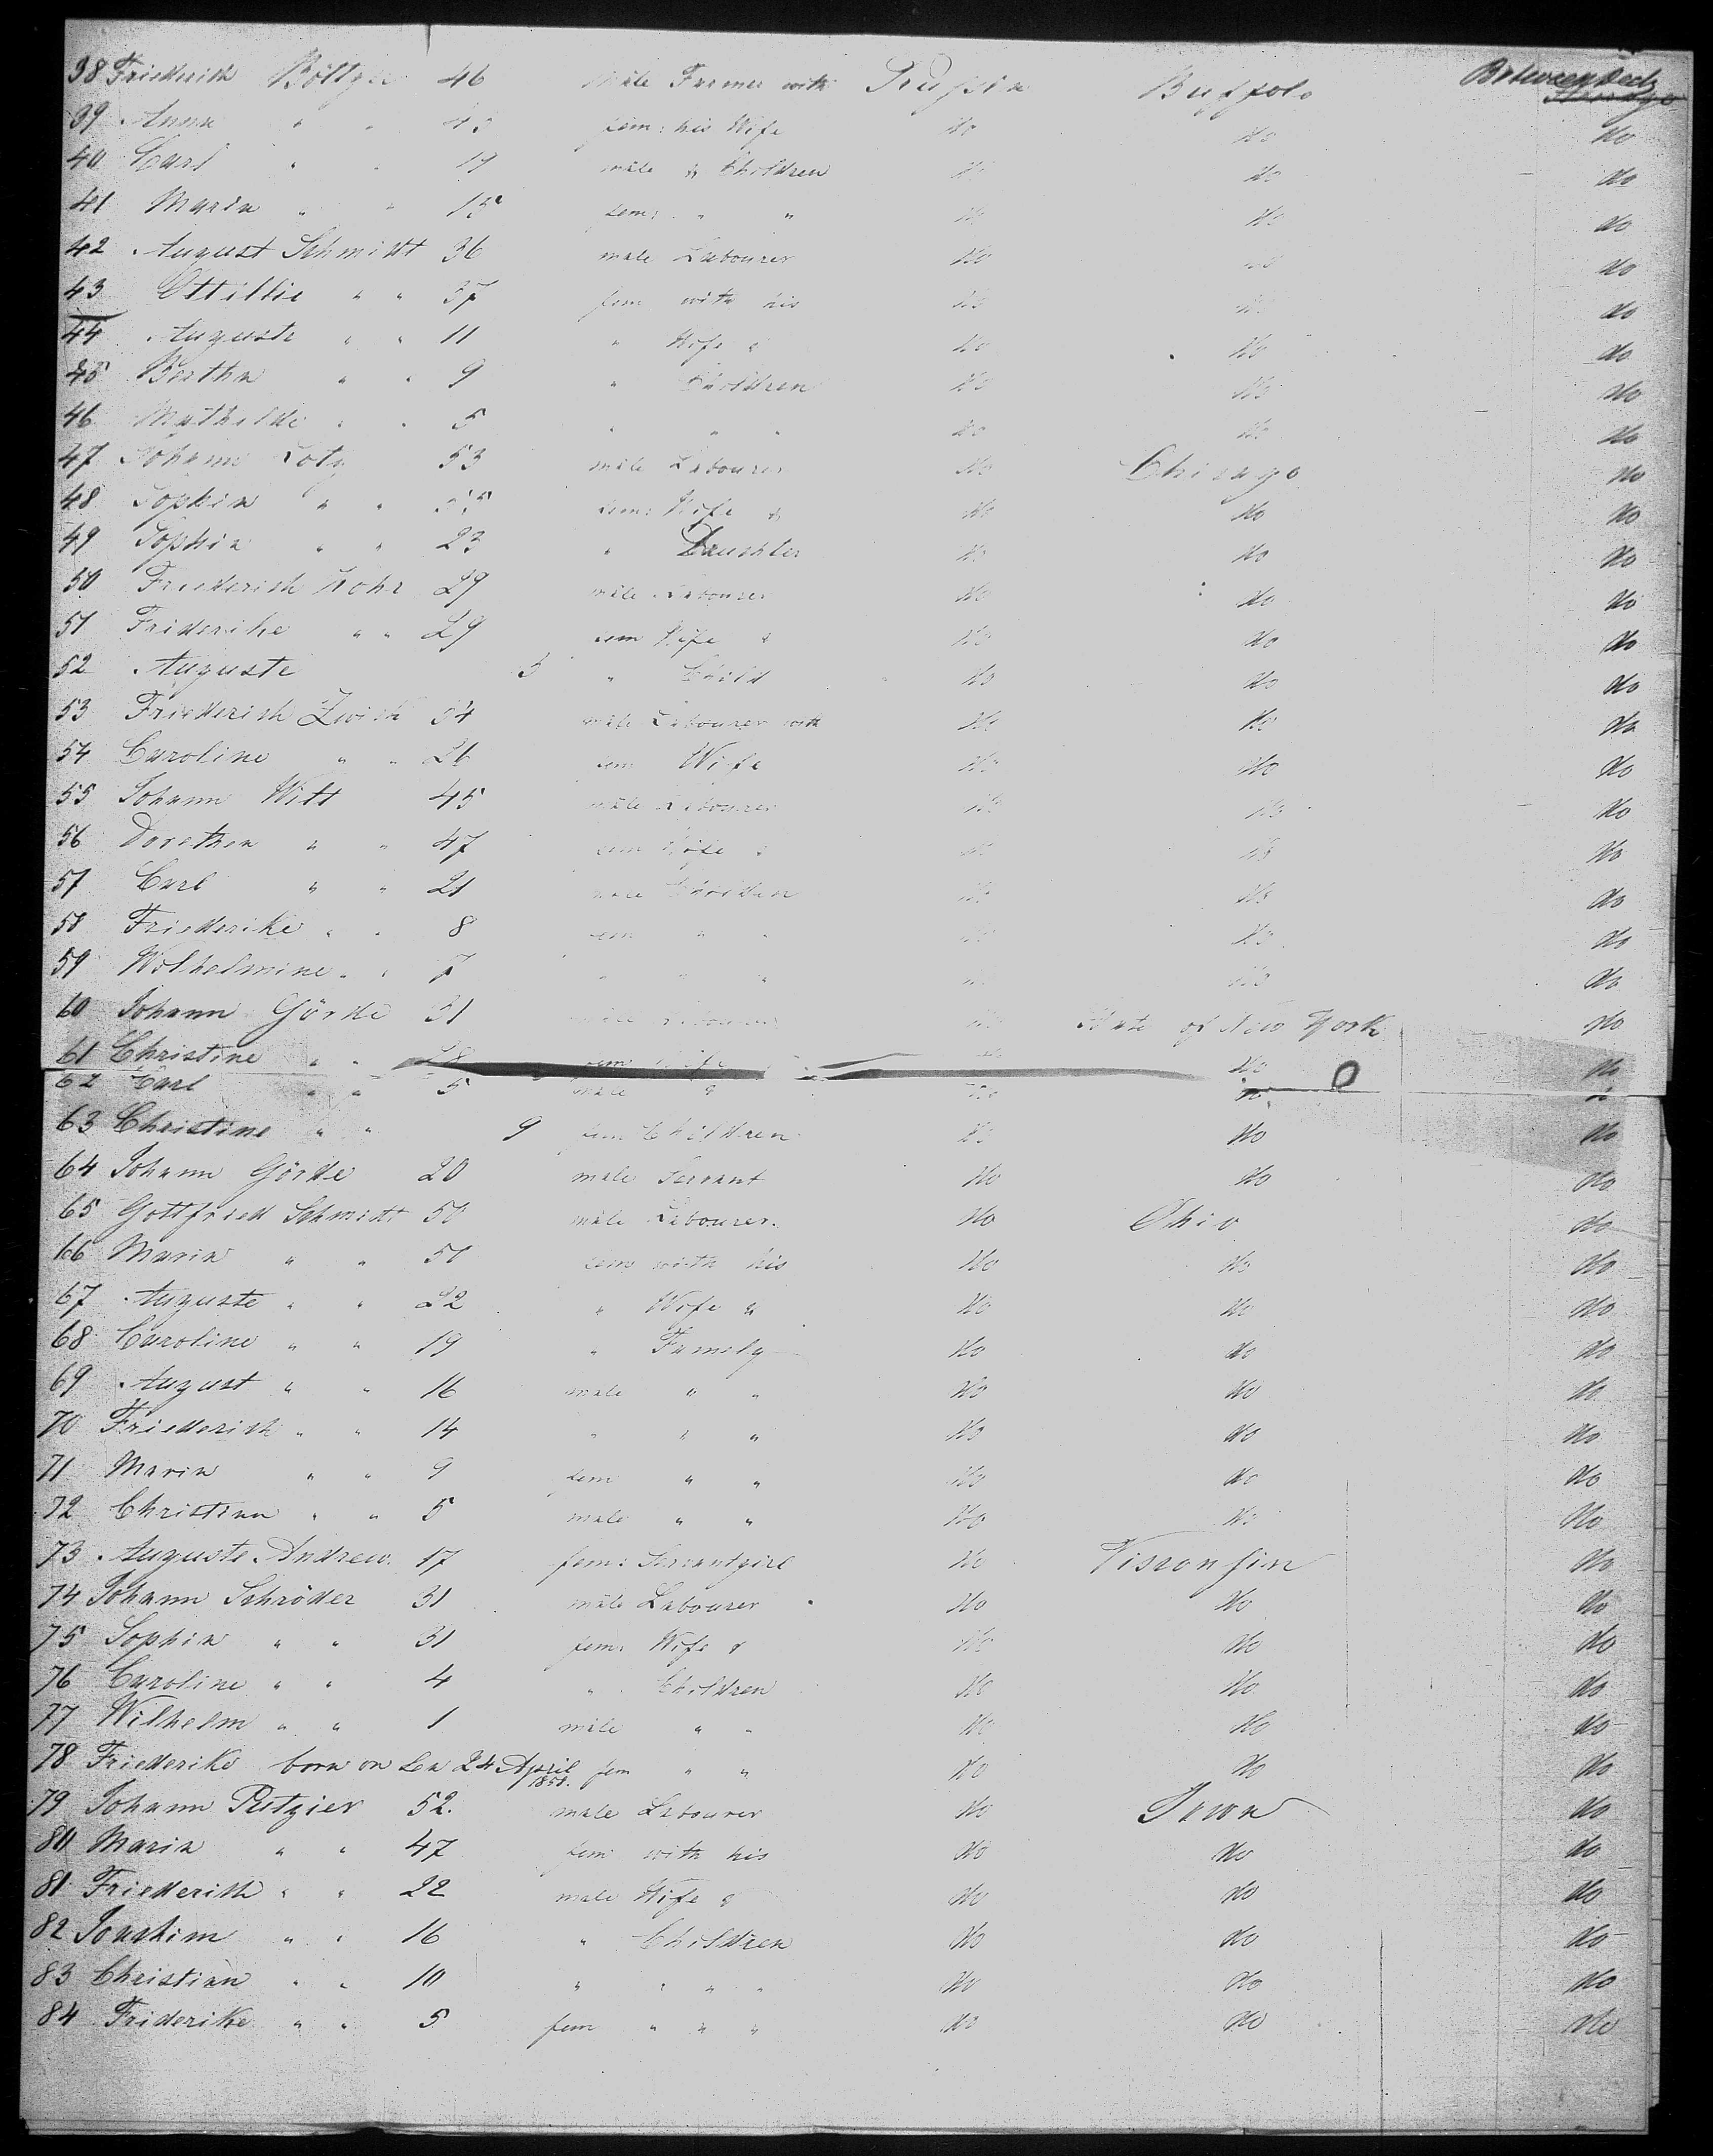 38 Friederich Böltzer 46 Male Farmer with Prussia Buffolo Betweendeck
39 Anna " " 43 fem: his Wife do do do
40 Carl " " 19 male & Children do do do
41 Maria " " 15 fem: " " do do do
42 August Schmidt 36 male Labourer do do do
43 Ottillie " " 37 fem with his do do do
44 Auguste " " 11 " Wife & do do do
45 Bertha " " 9 " Children do do do
46 Mathilde " " 5 " " " do do do
47 Johann Lotz 53 male Labourer do Chicago do
48 Sophia " " 55 fem: Wife & do do do
49 Sophia " " 23 " Daughter do do do
50 Friederich Rohr 29 male Labourer do do do
51 Friderike " " 29 fem Wife & do do do
52 Auguste 3 " Child do do do
53 Friederich Zwick 54 male Labourer with do do do
54 Caroline " " 26 fem Wife do do do
55 Johann Witt 45 male Labourer do do do
56 Dorethea " " 47 fem Wife & do do do
57 Carl " " 21 male Children do do do
58 Friederike " " 8 fem " " do do do
59 Wilhelmine " " 7 " " " do do do
60 Johann Görde 31 male Labourer do State of New York do
61 Christine " " 28 fem Wife do do do
62 Carl " " 5 male & do do do
63 Christine " " 9 fem Children do do do
64 Johann Görde 20 male Servant do do do
65 Gottfried Schmidt 50 male Labourer. do Ohio do
66 Maria " " 50 fem with his do do do
67 Auguste " " 22 " Wife & do do do
68 Caroline " " 19 " Famely do do do
69 August " " 16 male " " do do do
70 Friederich " " 14 " " " do do do
71 Maria " " 9 fem " " do do do
72 Christian " " 5 male " " do do do
73 Auguste Andrew. 17 fem: Servantgirl do Visconsin do
74 Johann Schröder 31 male Labourer do do do
75 Sophia " " 31 fem: Wife & do do do
76 Caroline " " 4 " Children do do do
77 Wilhelm " " 1 male " " do do do
78 Friederike born on Sea 24 April 1851. fem " " do do do
79 Johann Putzier 52. male Labourer do Iowa do
80 Maria " " 47 fem with his do do do
81 Friederich " " 22 male Wife & do do do
82 Joachim " " 16 " Children do do do
83 Christian " " 10 " " " " do do do
84 Friderike " " 5 fem " " " do do do